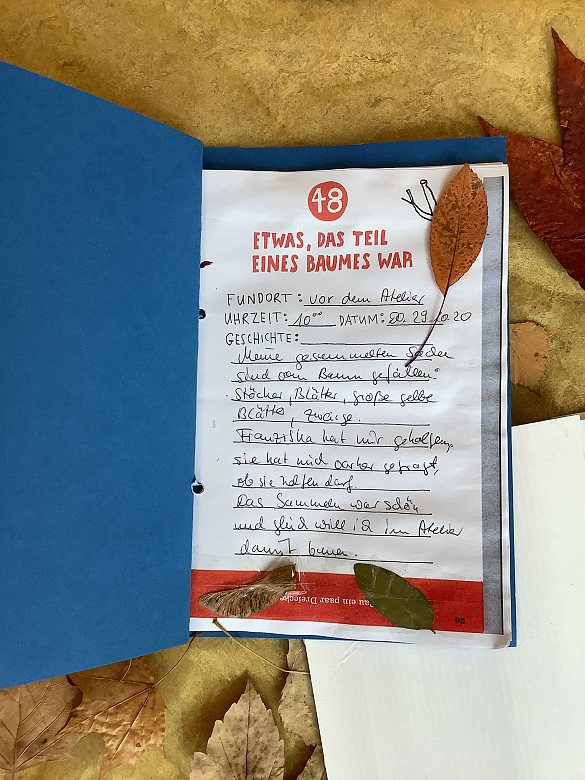 48
ETWAS, DAS TEIL
EINES BAUMES WAR
FUNDORT: vor dem Atelier
UHRZEIT: 10°° DATUM: 29.10.20
GESCHICHTE:
"Meine gesammelten Sachen
sind vom Baum gefallen."
Stöcker, Blätter, große gelbe
Blätter, Zweige.
Franziska hat mir geholfen,
sie hat mich vorher gefragt,
ob sie helfen darf.
Das Sammeln war schön
und gleich will ich im Atelier
damit bauen.
Bau ein paar Dreiecke